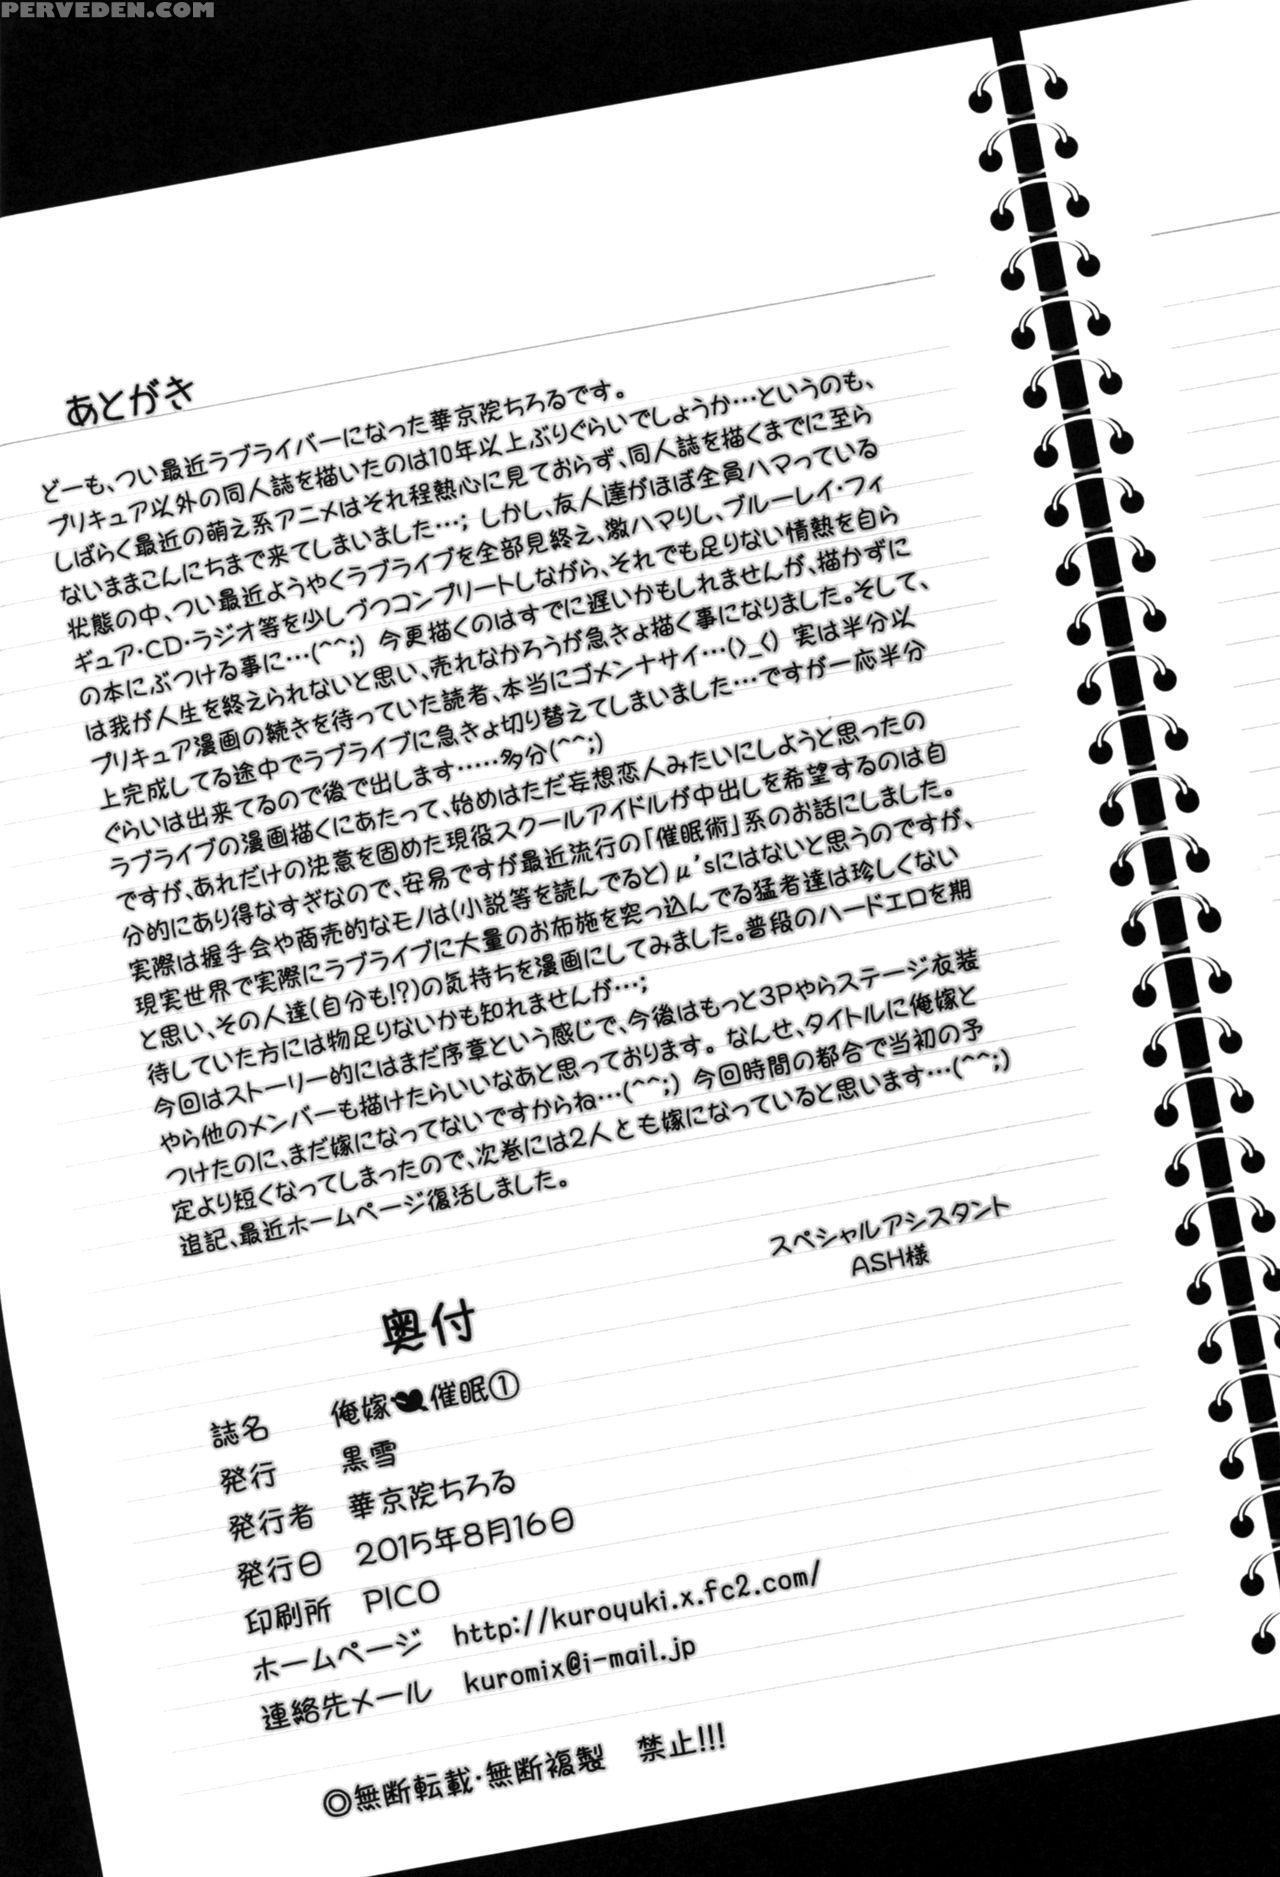 PERVEDEN.COM
あとがき
どーも、つい最近ラブライバーになった華京院ちろるです。
プリキュア以外の同人誌を描いたのは10年以上ぶりぐらいでしょうか…というのも、
しばらく最近の萌え系アニメはそれ程熱心に見ておらず、同人誌を描くまでに至ら
ないままこんにちまで来てしまいました…; しかし、友人達がほぼ全員ハマっている
状態の中、つい最近ようやくラブライブを全部見終え、激ハマりし、ブルーレイ・フィ
ギュア・CD・ラジオ等を少しづつコンプリートしながら、それでも足りない情熱を自ら
の本にぶつける事に…(^^;) 今更描くのはすでに遅いかもしれませんが、描かずに
は我が人生を終えられないと思い、売れなかろうが急きょ描く事になりました。そして、
プリキュア漫画の続きを待っていた読者、本当にゴメンナサイ…(>_<) 実は半分以
上完成してる途中でラブライブに急きょ切り替えてしまいました…ですが一応半分
ぐらいは出来てるので後で出します……多分(^^;)
ラブライブの漫画描くにあたって、始めはただ妄想恋人みたいにしようと思ったの
ですが、あれだけの決意を固めた現役スクールアイドルが中出しを希望するのは自
分的にあり得なすぎなので、安易ですが最近流行の「催眠術」系のお話にしました。
実際は握手会や商売的なモノは(小説等を読んでると)μ'sにはないと思うのですが、
現実世界で実際にラブライブに大量のお布施を突っ込んでる猛者達は珍しくない
と思い、その人達(自分も!?)の気持ちを漫画にしてみました。普段のハードエロを期
待していた方には物足りないかも知れませんが…;
今回はストーリー的にはまだ序章という感じで、今後はもっと3Pやらステージ衣装
やら他のメンバーも描けたらいいなあと思っております。なんせ、タイトルに俺嫁と
つけたのに、まだ嫁になってないですからね…(^^;) 今回時間の都合で当初の予
定より短くなってしまったので、次巻には2人とも嫁になっていると思います…(^^;)
追記、最近ホームページ復活しました。
スペシャルアシスタント
ASH様
奥付
誌名 俺嫁催眠①
発行 黒雪
発行者 華京院ちろる
発行日 2015年8月16日
印刷所 PICO
ホームページ http://kuroyuki.x.fc2.com/
連絡先メール kuromix@i-mail.jp
◎無断転載・無断複製 禁止!!!